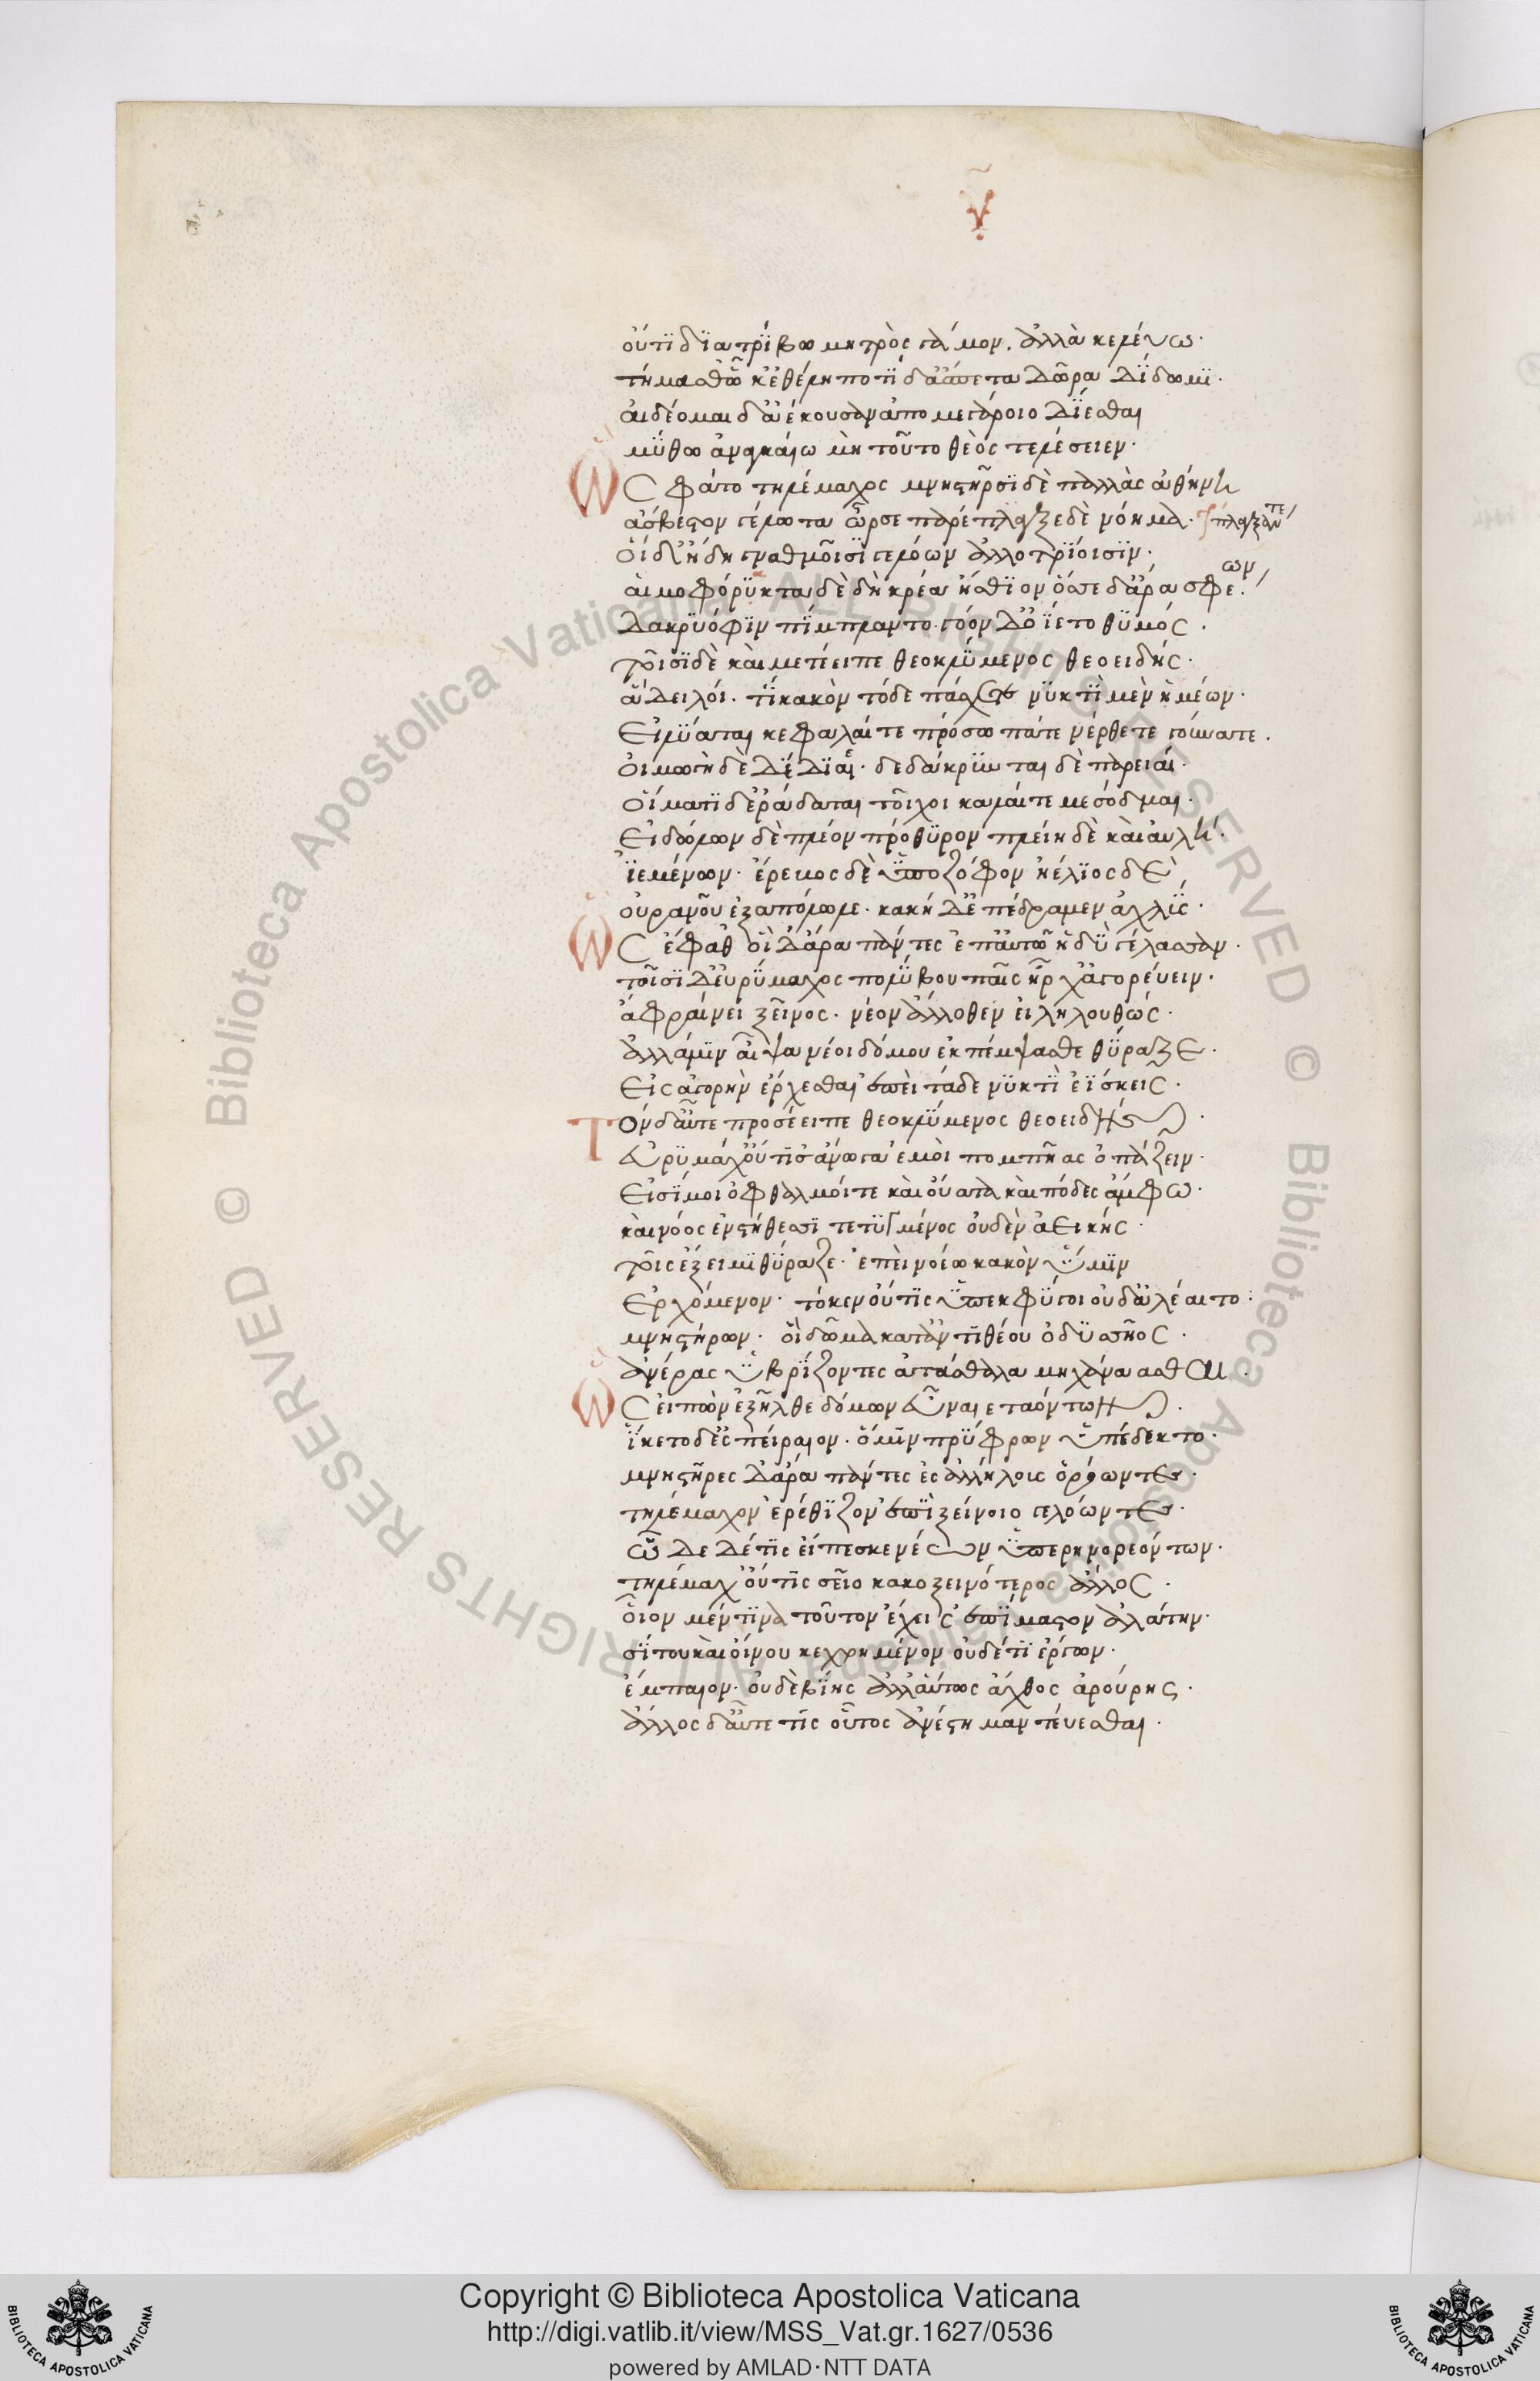 υ
οὔτϊ δϊατρίβω μητρὸς γάμον. ἀλλὰ κελεύω·
γήμασθ᾽ ὧ κ᾽ ἐθέλη ποτὶ δ᾽ ἄσπετα δῶρα δΐδωμι·
αἰδέομαι δ᾽ ἀέκουσαν ἀπο μεγάροιο δΐεσθαι
μύθω ἀναγκαίω μὴ τοῦτο θεὸς τελέσειεν·
Ὣς φάτο τηλέμαχος μνηστῆρσϊ δὲ παλλὰς ἀθήνη
ἄσβεστον γέλωτα ὦρσε παρέπλαγξε δὲ νόημα·
Οἱ δ᾽ ἤδη γναθμοῖσϊ γελόων ἀλλοτρΐοισϊν·
αἱμοφόρϋκτα δὲ δὴ κρέα ἤσθϊον ὄσσε δ᾽ ἄρα σφε. ων
δακρϋόφϊν πίμπλαντο· γόον δ᾽ ὠΐετο θϋμός·
τοῖσϊ δὲ καὶ μετέειπε θεοκλύμενος θεοειδής·
ἆ δειλοί. τί κακὸν τόδε πάσχετε νϋκτὶ μὲν ὑμέων·
Εἰλύαται κεφαλαί τε πρόσωπά τε νέρθε τε γούνατε.
οἰμωγὴ δὲ δέδϊαε· δεδάκρϋνται δὲ παρειαί·
αἵματϊ δ᾽ ἐρράδαται τοῖχοι καλαί τε μεσόδμαι·
Εἰδώλων δὲ πλέον πρόθϋρον πλείη δὲ καὶ αὐλή·
ἱεμένων· ἔρεβος δὲ ὑπο ζόφον ἠέλϊος δὲ
οὐρανοῦ ἐξαπόλωλε· κακὴ δ᾽ ἐπέδραμεν ἀχλύς·
Ὣς ἔφαθ᾽ οἱ δ᾽ ἄρα πάντες ἐπ᾽ αὐτῶ ἡδϋ γέλασσαν·
τοῖσϊ δ᾽ εὐρύμαχος πολύβου παῖς ἦρχ᾽ ἀγορεύειν·
ἀφραίνει ξεῖνος· νέον ἄλλοθεν εἰληλουθώς·
ἀλλά μιν αἶψα νέοι δόμου ἐκπέμψασθε θύραζε·
Εἰς ἀγορὴν ἔρχεσθαι ἐπεὶ τάδε νϋκτὶ ἐΐσκεις·
Τὸν δ᾽ αὖτε προσέειπε θεοκλύμενος θεοειδής·
Εὐρϋμάχ᾽ οὔ τΐ σ᾽ ἄνωγα ἐμοὶ πομπῆας ὀπάζειν·
Εἰσί μοι ὀφθαλμοί τε καὶ οὔατα καὶ πόδες ἄμφω·
καὶ νόος ἐν στήθεσσϊ τετϋγμένος οὐδὲν ἀεικής·
τοῖς ἔξειμι θύραζε· ἐπεὶ νοέω κακὸν ὔμιν
Ἐρχόμενον· τό κεν οὔτις ὑπεκφύγοι οὐδ᾽ ἀλέαιτο·
μνηστήρων· οἳ δῶμα κατ᾽ ἀντιθέου ὀδϋσῆος·
ἀνέρας ὑβρΐζοντες ἀτάσθαλα μηχάνασσθαι·
Ὣς εἰπὼν ἐξῆλθε δόμων εὖ ναιεταόντων·
ἵκετο δ᾽ ἐς πείραιον· ὅ μιν πρόφρων ὑπέδεκτο·
μνηστῆρες δ᾽ ἄρα πάντες ἐς ἀλλήλοις ὁρόωντες·
τηλέμαχον ἐρέθϊζον ἐπὶ ξείνοιο γελόωντες·
ὧδε δέ τις εἴπεσκε νέων ὑπερηνορεόντων·
τηλέμαχ᾽ οὔτις σεῖο κακοξεινότερος ἄλλος·
οἷον μέν τινα τοῦτον ἔχεις ἐπίμαστον ἀλήτην·
σΐτου καὶ οἴνου κεχρημένον οὐδέ τι ἔργων·
ἔμπαιον· οὐδὲ βίης ἀλλ᾽ αὔτως ἄχθος ἀρούρης·
ἄλλος δ᾽ αὖτέ τις οὗτος ἀνέστη μαντεύεσθαι·
Copyright © Biblioteca Apostolica Vaticana
http://digi.vatlib.it/view/MSS_Vat.gr.1627/0536
powered by AMLAD·NTT DATA